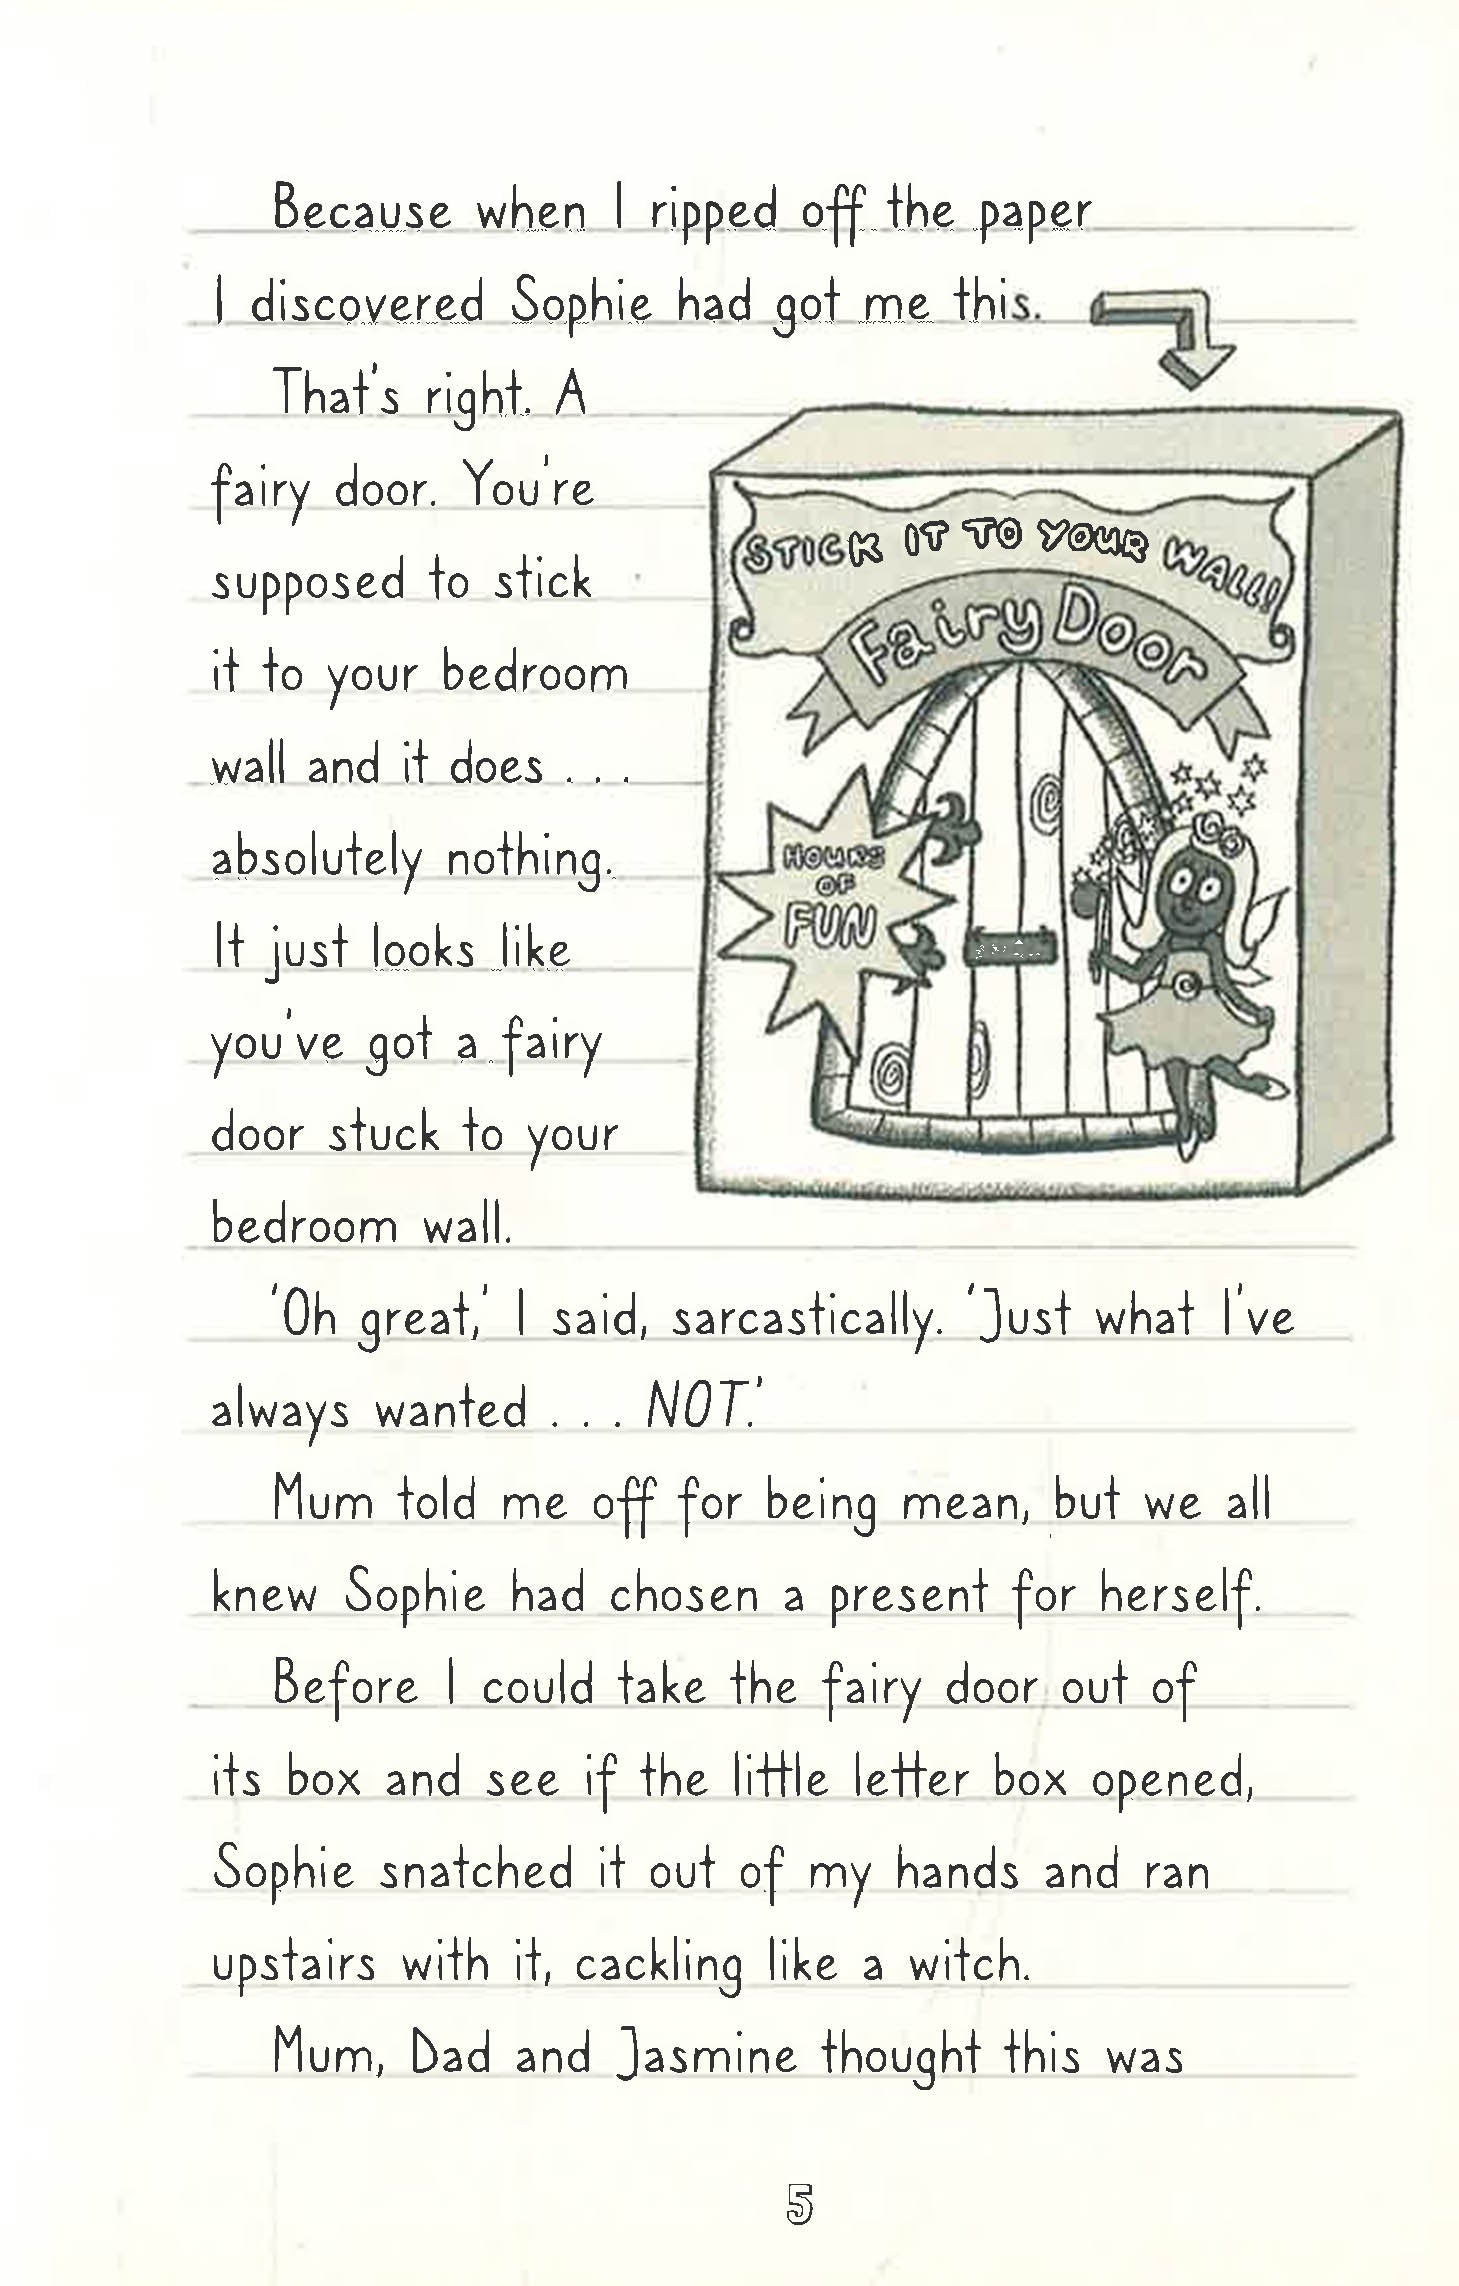 Because when I ripped off the paper
I discovered Sophie had got me this.
That's right. A
fairy door. You're
supposed to stick
it to your bedroom
wall and it does . . .
absolutely nothing.
It just looks like
you've got a fairy
door stuck to your
bedroom wall.
STICK IT TO YOUR WALL!
Fairy Door
HOURS
OF
FUN
'Oh great,' I said, sarcastically. 'Just what I've
always wanted . . . NOT.'
Mum told me off for being mean, but we all
knew Sophie had chosen a present for herself.
Before I could take the fairy door out of
its box and see if the little letter box opened,
Sophie snatched it out of my hands and ran
upstairs with it, cackling like a witch.
Mum, Dad and Jasmine thought this was
5